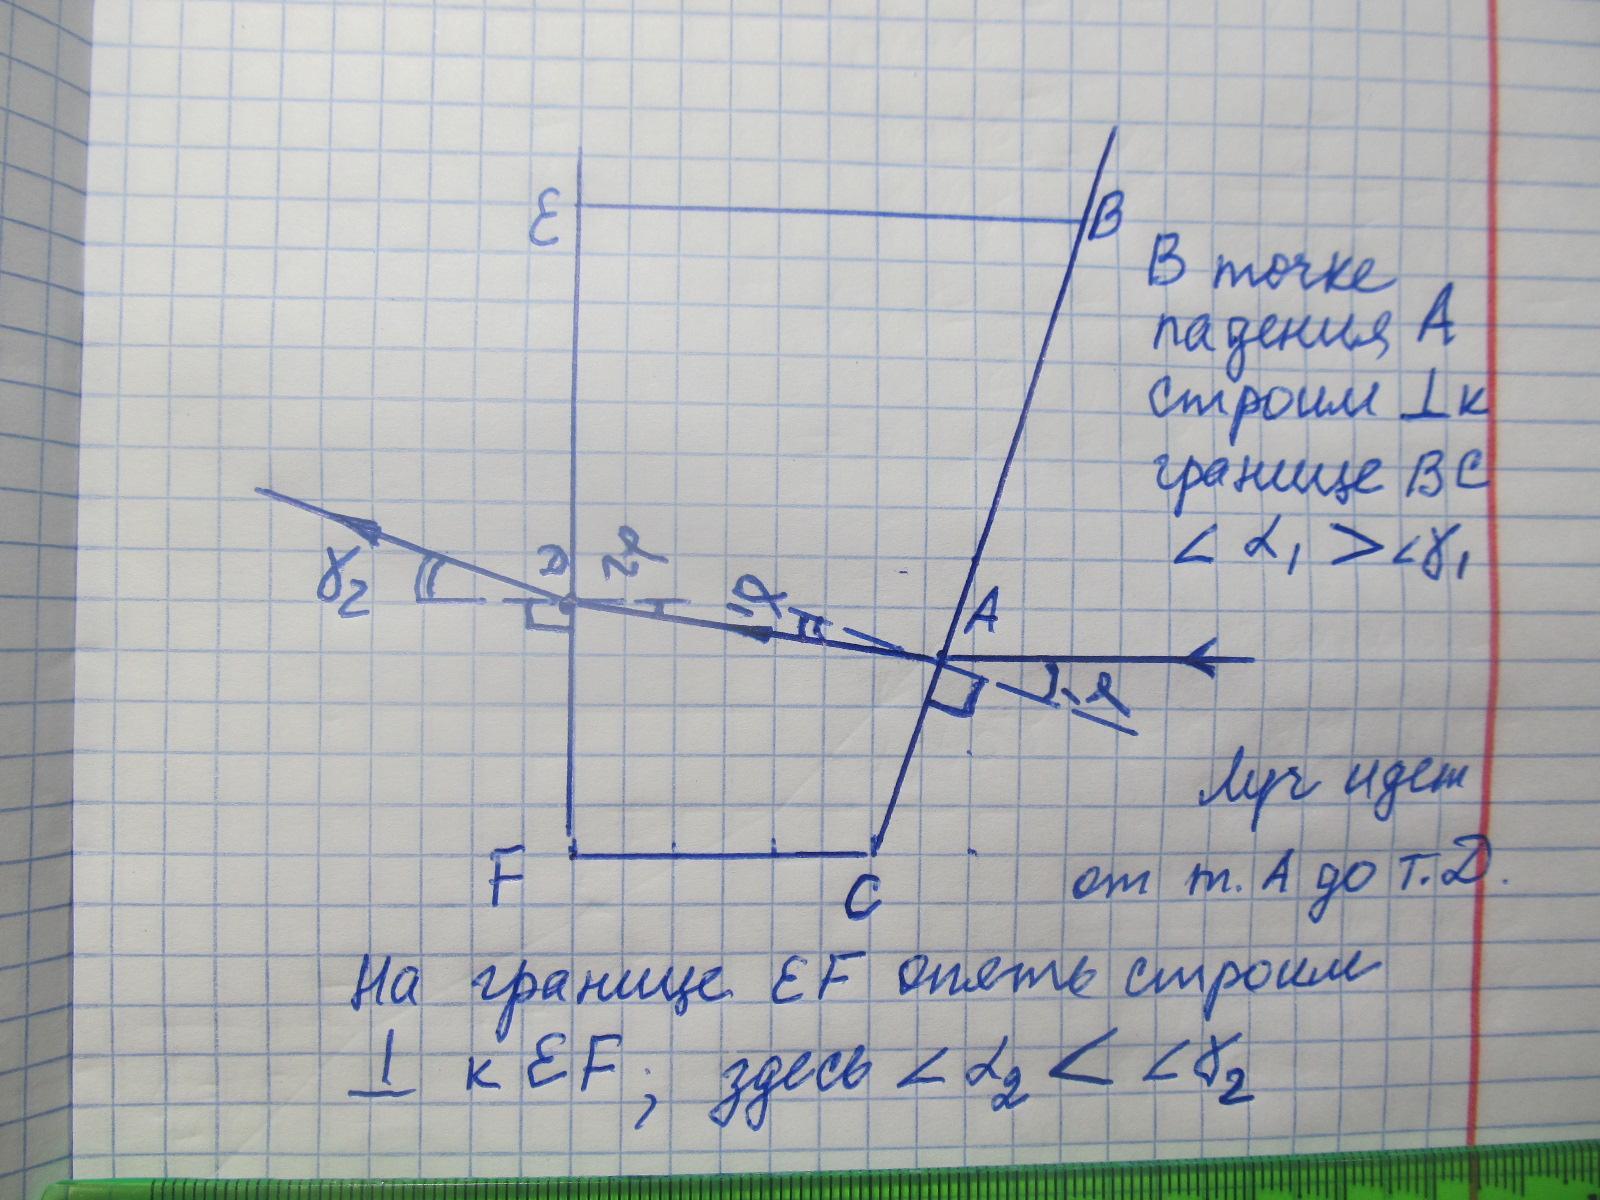 E
B
В точке
падения А
строим ⊥ к
границе ВС
< α₁ > <γ₁
γ₂
D
α₂
γ₁
A
α₁
Луч идет
от т. А до т. D.
F
C
На границе EF опять строим
⊥ к EF; здесь < α₂ < <γ₂